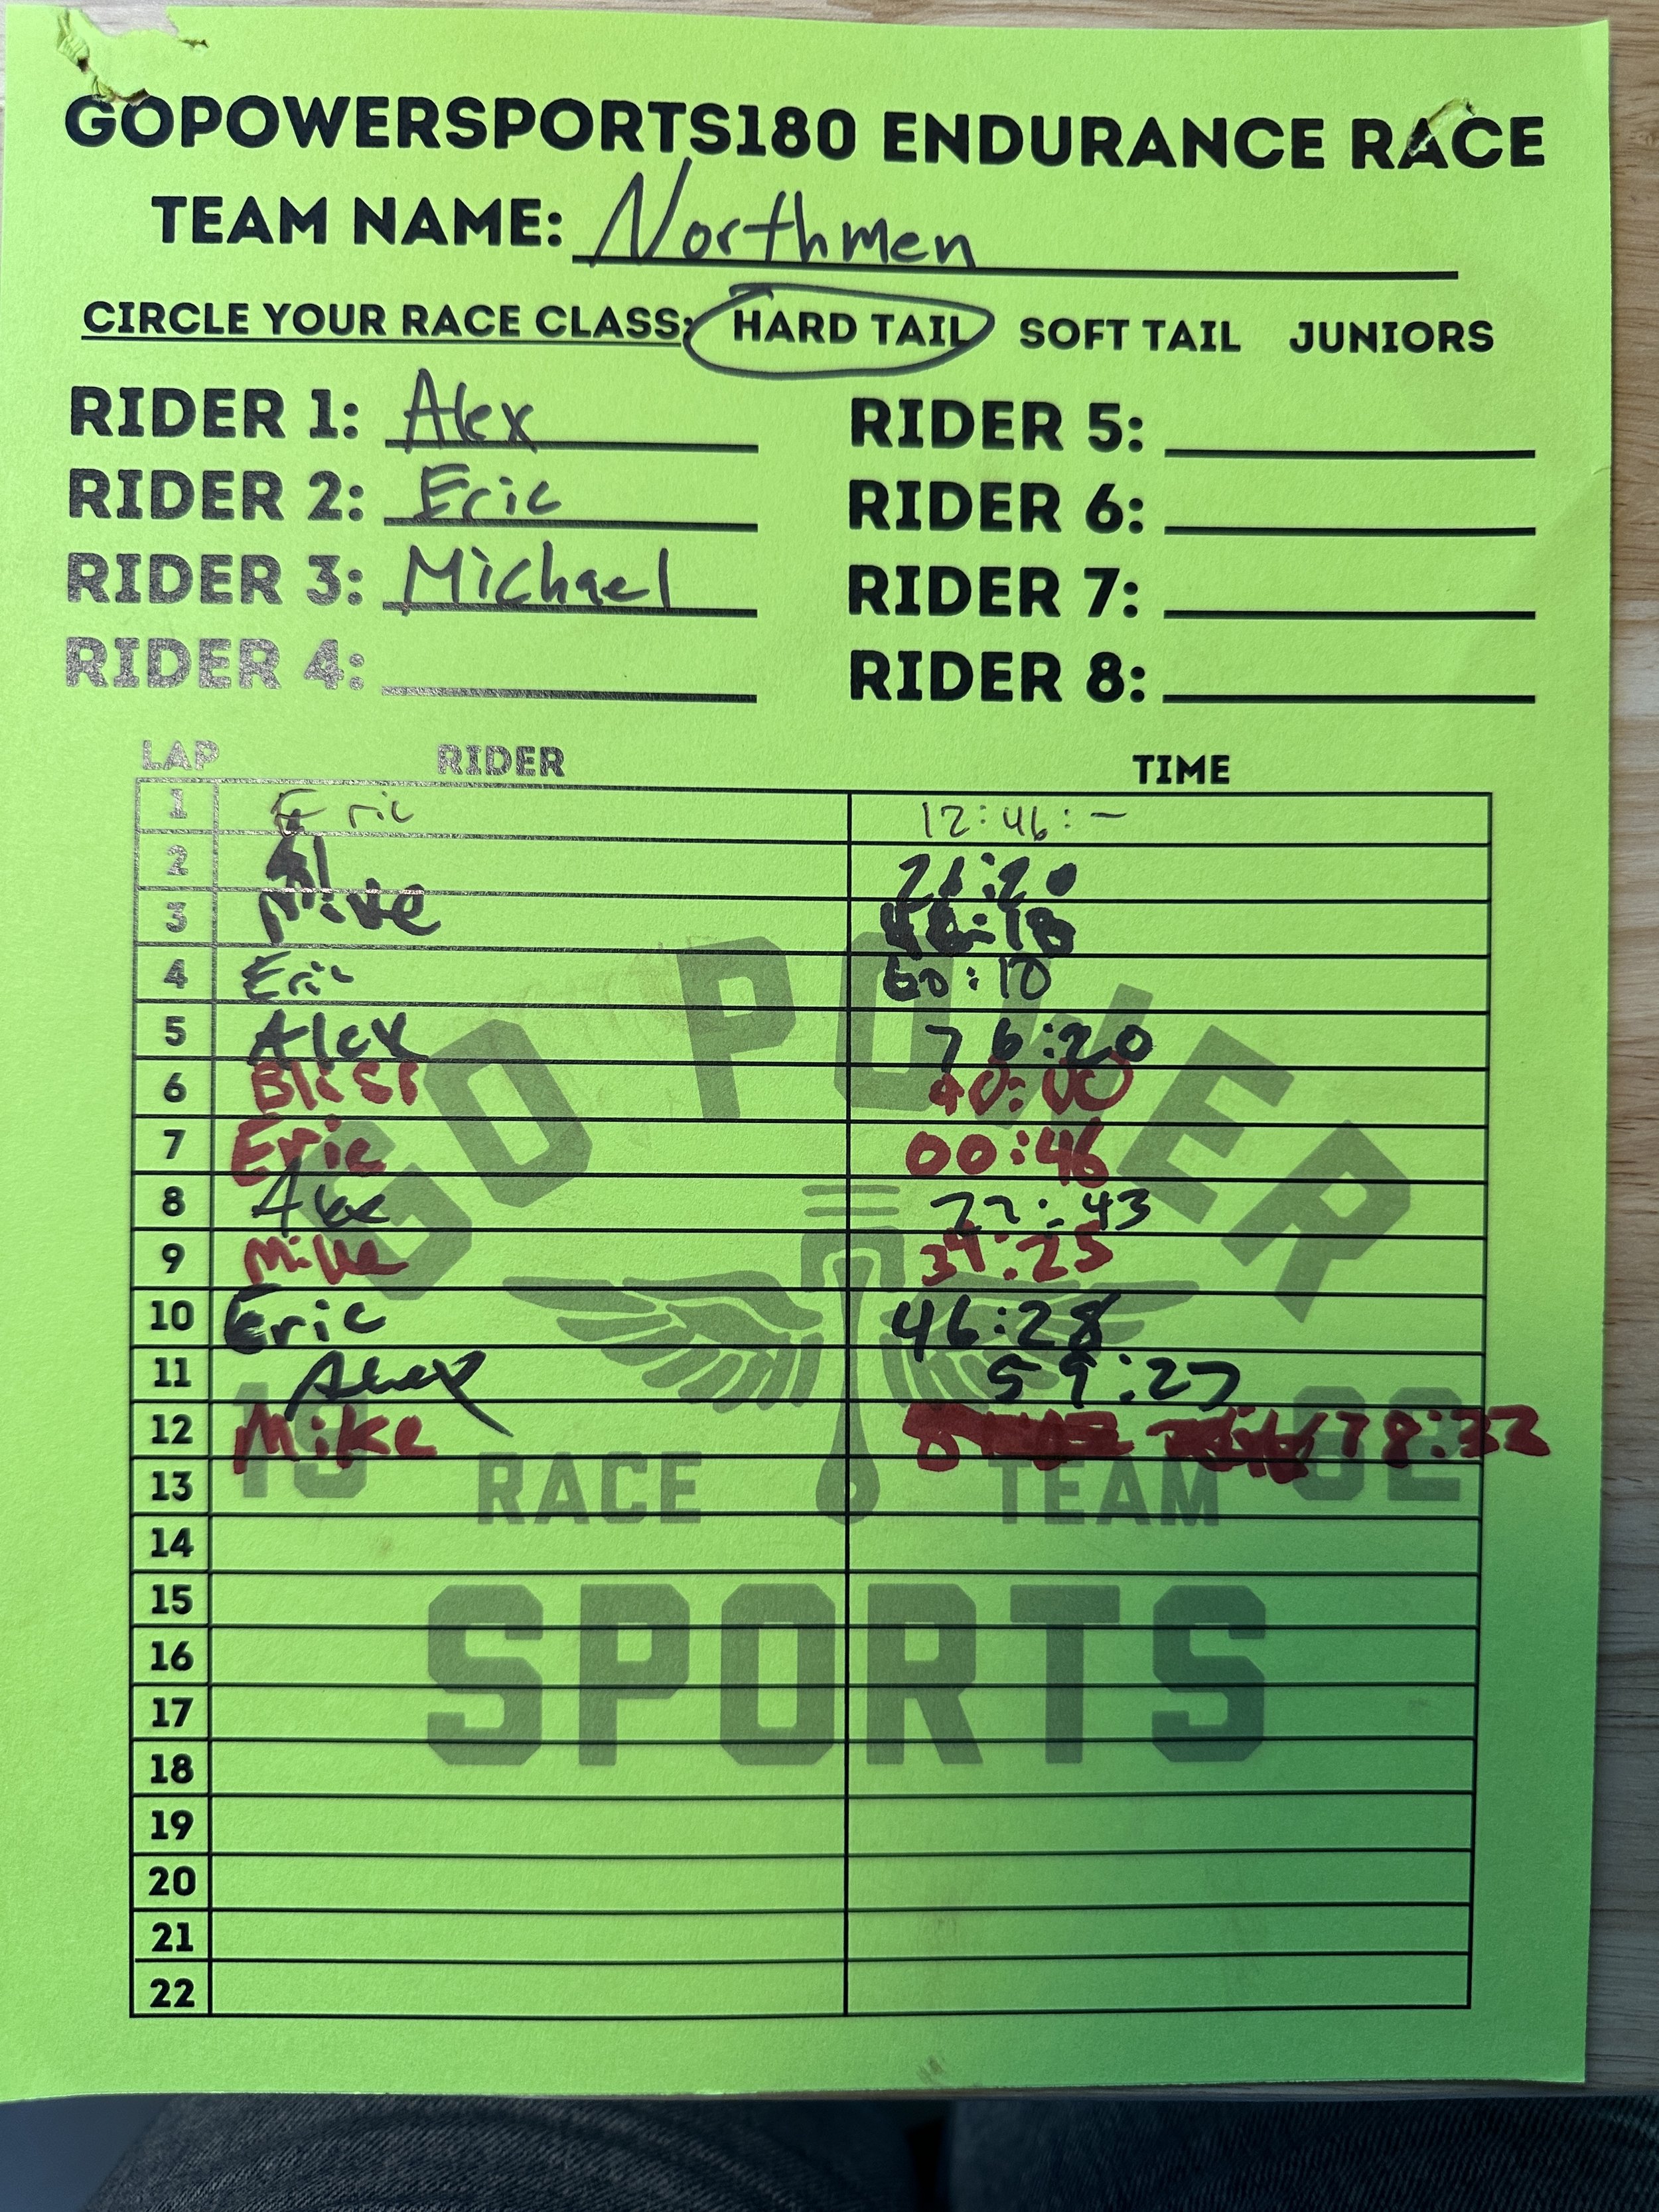 GOPOWERSPORTS180 ENDURANCE RACE
TEAM NAME: Northmen
CIRCLE YOUR RACE CLASS: HARD TAIL SOFT TAIL JUNIORS
RIDER 1: Alex RIDER 5:
RIDER 2: Eric RIDER 6:
RIDER 3: Michael RIDER 7:
RIDER 4: RIDER 8:
LAP RIDER TIME
1 Eric 12:46:-
2 Al 26:20
3 Mike 46:18
4 Eric 60:10
5 Alex 76:20
6 90:00
7 Eric 00:46
8 Alex 22:43
9 Mike 34:25
10 Eric 46:28
11 Alex 59:27
12 Mike 78:32
13
14
15
16
17
18
19
20
21
22
GO POWER
1982
RACE TEAM
SPORTS